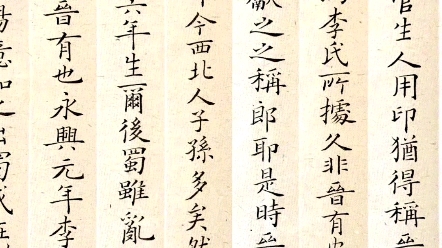 生人用印猶得稱晉
李氏所據久非晉有也
獻之之稱郎耶是時晉
今西北人子孫多矣然
六年生爾後蜀雖亂
晉有也永興元年李